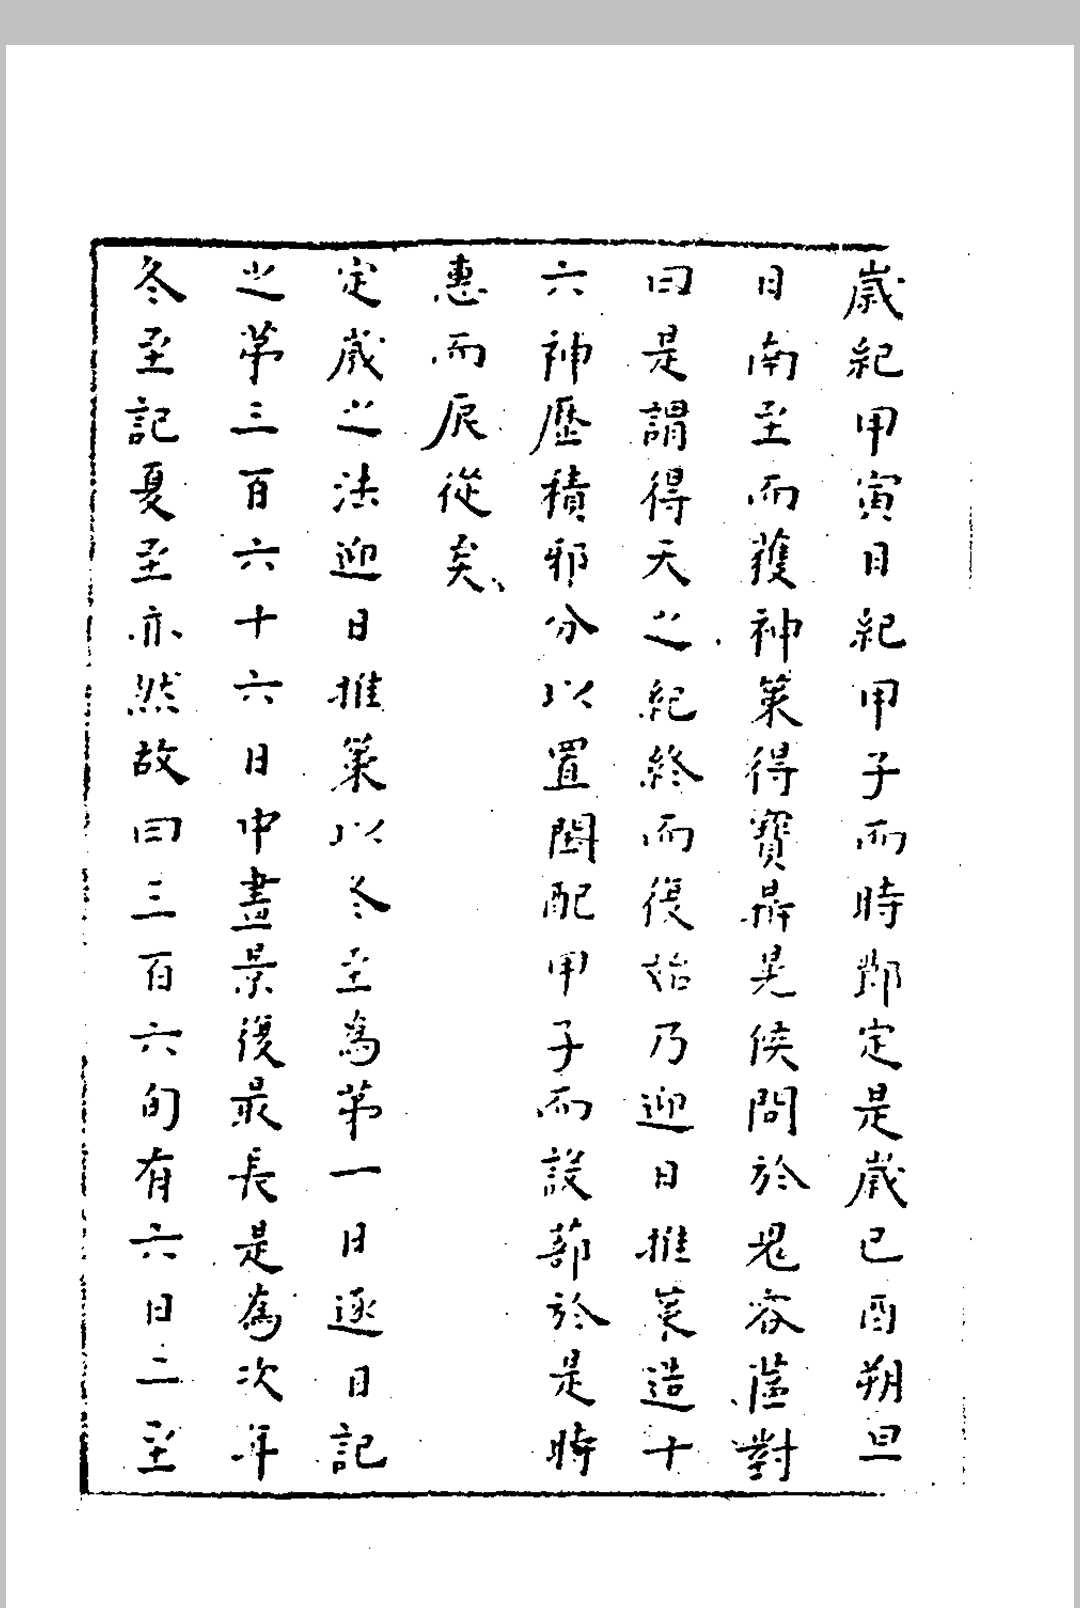 歲紀甲寅日紀甲子而時鄰定是歲已酉朔旦
日南至而獲神策得寶鼎冕候問於鬼容蓲對
曰是謂得天之紀終而復始乃迎日推策造十
六神歷積邪分以置閏配甲子而設蔀於是時
惠而辰從矣
定歲之法迎日推策以冬至為第一日逐日記
之第三百六十六日中晝景復最長是為次年
冬至記夏至亦然故曰三百六旬有六日二至